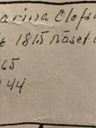 arina Olofs
1815 Näset
65
44